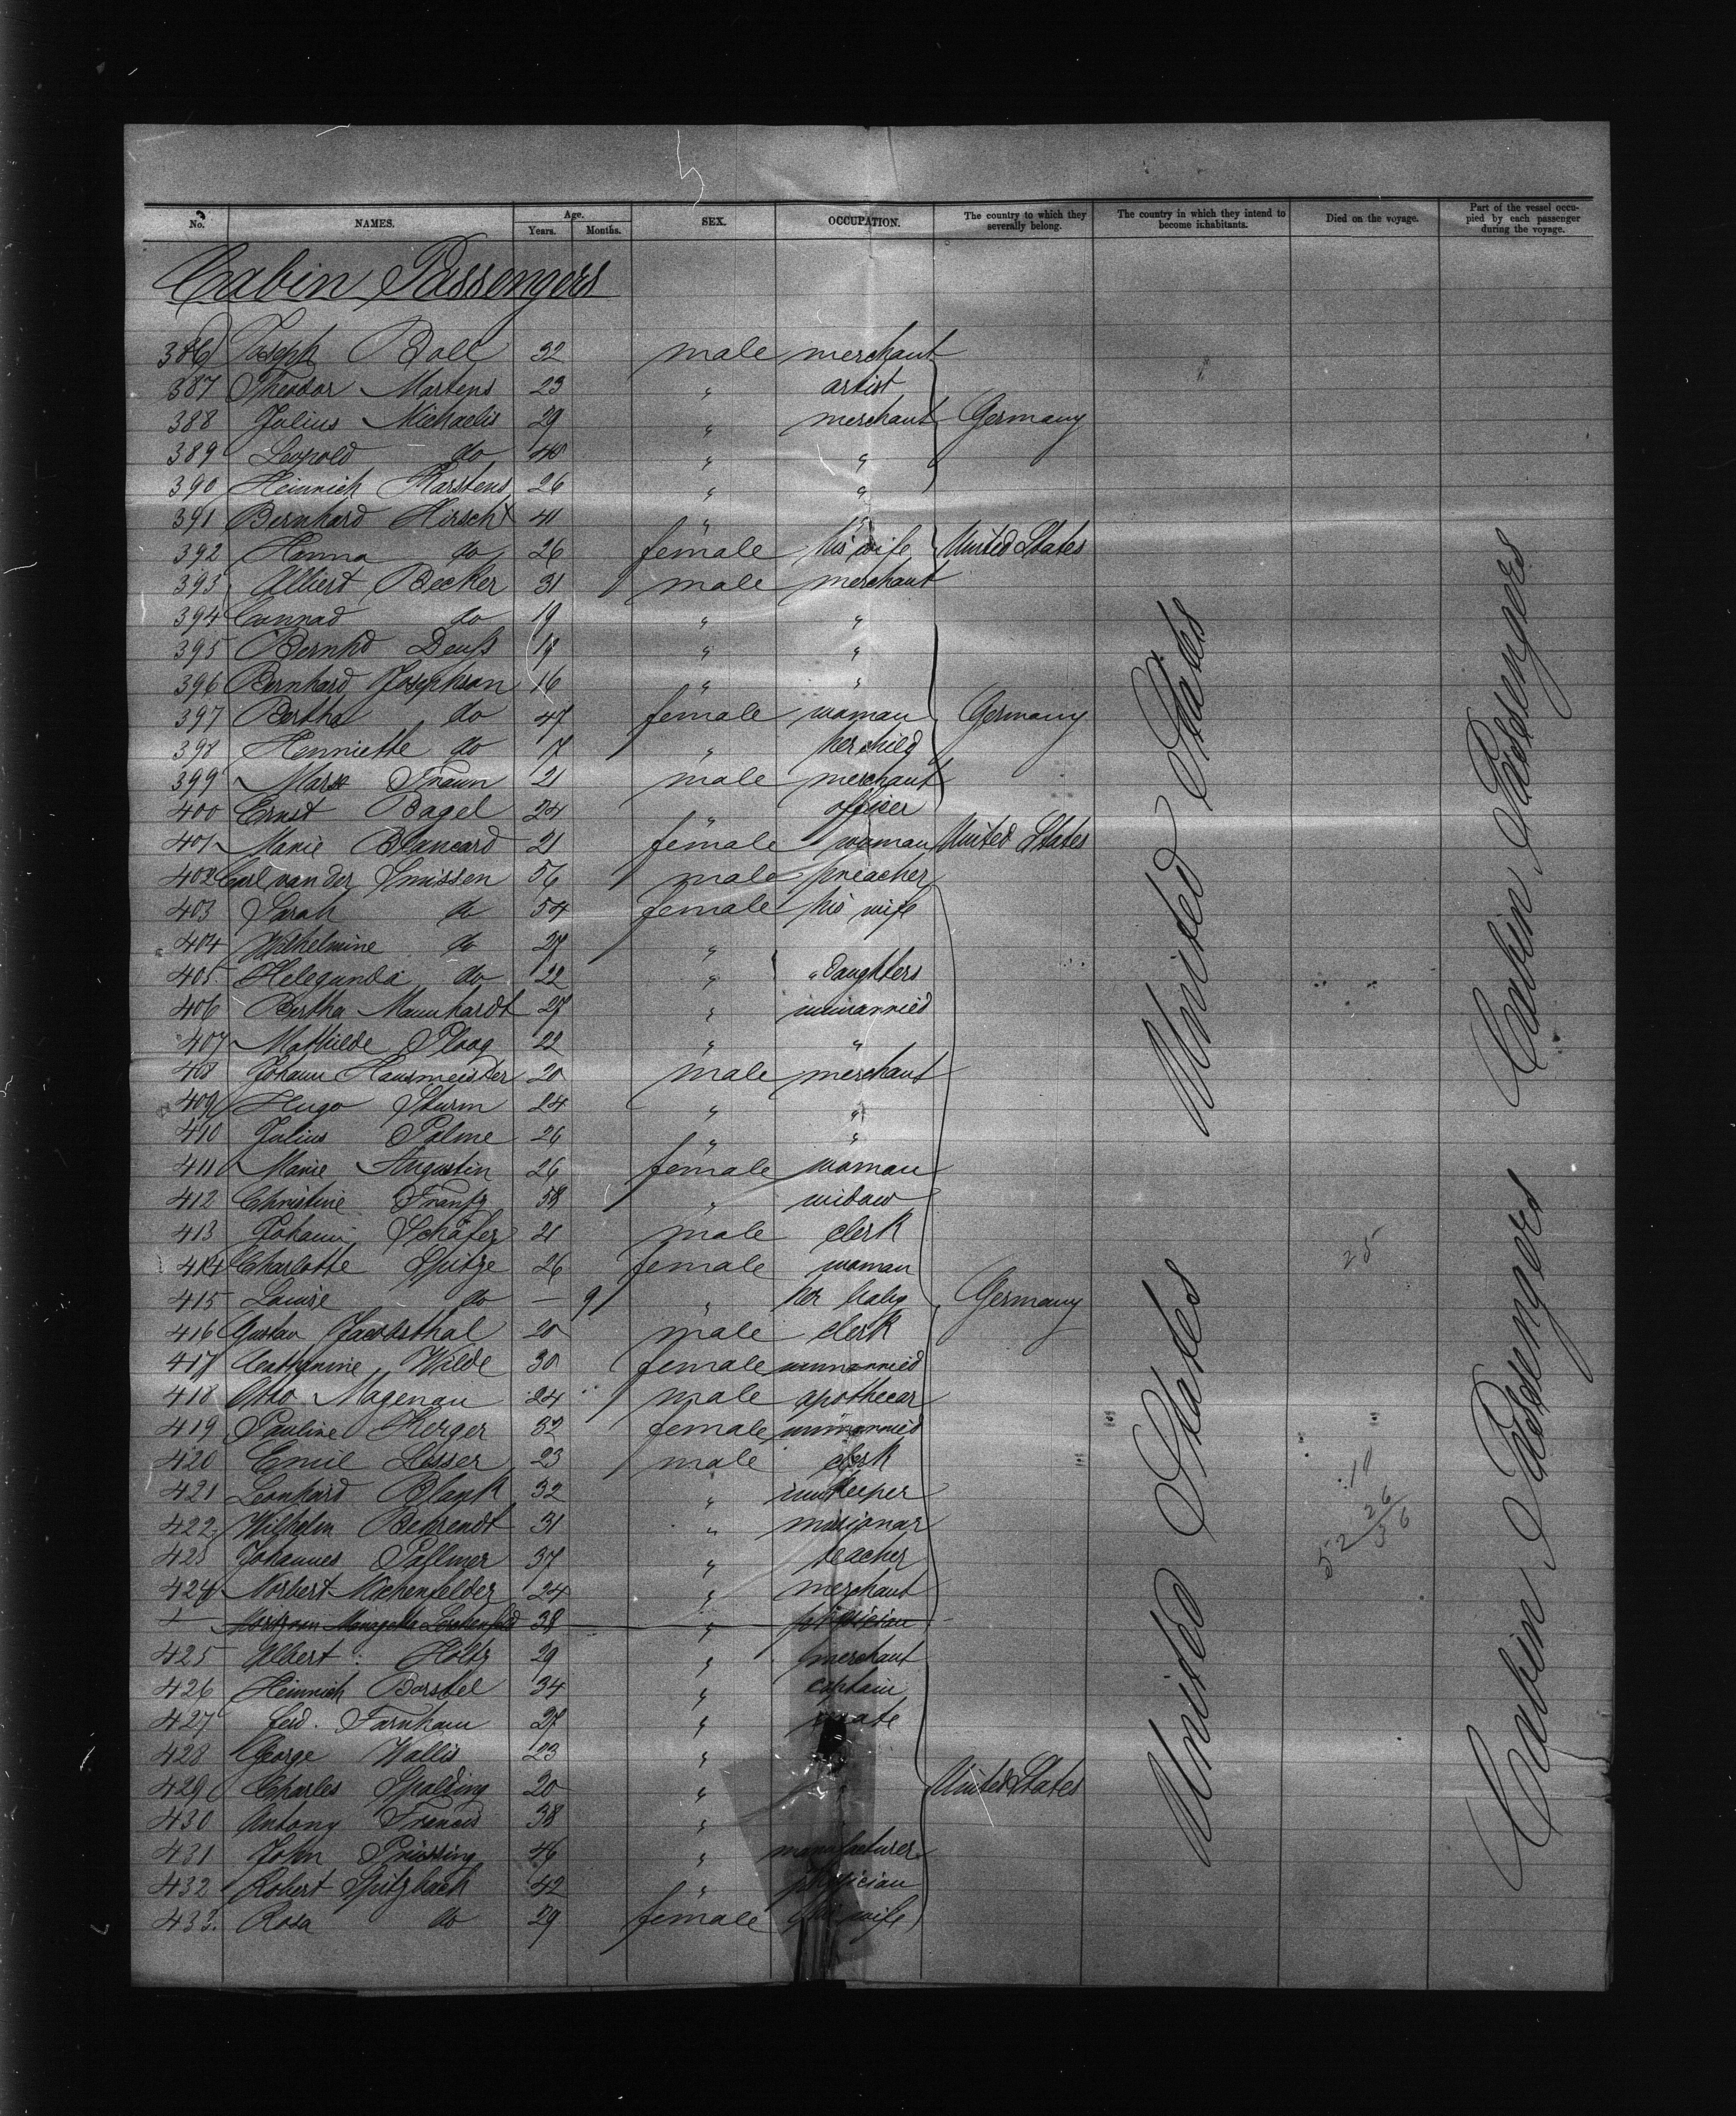 No. NAMES. Age. Years. Months. SEX. OCCUPATION. The country to which they severally belong. The country in which they intend to become inhabitants. Died on the voyage. Part of the vessel occupied by each passenger during the voyage.
Cabin Passengers
386 Joseph Boll 32 male merchant
387 Theodor Martens 23 " artist
388 Julius Michaelis 29 " merchant Germany
389 Leopold do 40 " "
390 Heinrich Karstens 26 " "
391 Bernhard Hirsch 41 " "
392 Hanna do 26 female his wife United States
393 Albert Becker 31 male merchant
394 Conrad do 19 " "
395 Bernhd Deuß 19 " "
396 Bernhard Josephson 16 " "
397 Bertha do 47 female woman Germany
398 Henriette do 7 " her child
399 Traun 21 male merchant
400 Ernst Bagel 24 " officer
401 Marie Blancard 21 female woman United States
402 Carl van der Smissen 56 male preacher
403 Sarah do 54 female his wife
404 Wilhelmine do 27 "
405 Helegunda do 22 " " daughters
406 Bertha Mannhardt 27 " unmarried
407 Mathilde Ploog 22 " "
408 Johann Hausmeister 20 male merchant
409 Hugo Sturm 24 " "
410 Julius Palme 26 " "
411 Marie Augustin 26 female woman
412 Christine Frantz 58 " widow
413 Johann Schäfer 21 male clerk
414 Charlotte Spitze 26 female woman
415 Louise do — 9 " her baby Germany
416 Gustav Jacobsthal 20 male clerk
417 Catharine Wilde 30 female unmarried
418 Otto Magenau 24 male apothecar
419 Pauline Kerger 32 female unmarried
420 Emil Lesser 23 male clerk
421 Leonhard Blank 32 " innkeeper
422 Wilhelm Behrendt 31 " missionar
423 Johannes Pallmer 37 " teacher
424 Norbert 24 " merchant
38 " physician
425 Albert Holtz 29 " merchant
426 Heinrich Borstel 34 " captain
427 Ferd. Farnham 27 " mate
428 George Wallis 23 "
429 Charles Spalding 20 " " United States
430 Antony Francis 38 "
431 John Prissing 46 " manufacturer
432 Robert Spitzbach 42 " physician
433. Rosa do 29 female his wife
United States
United States
25
10
26
52 36
Cabin Passengers
Cabin Passengers